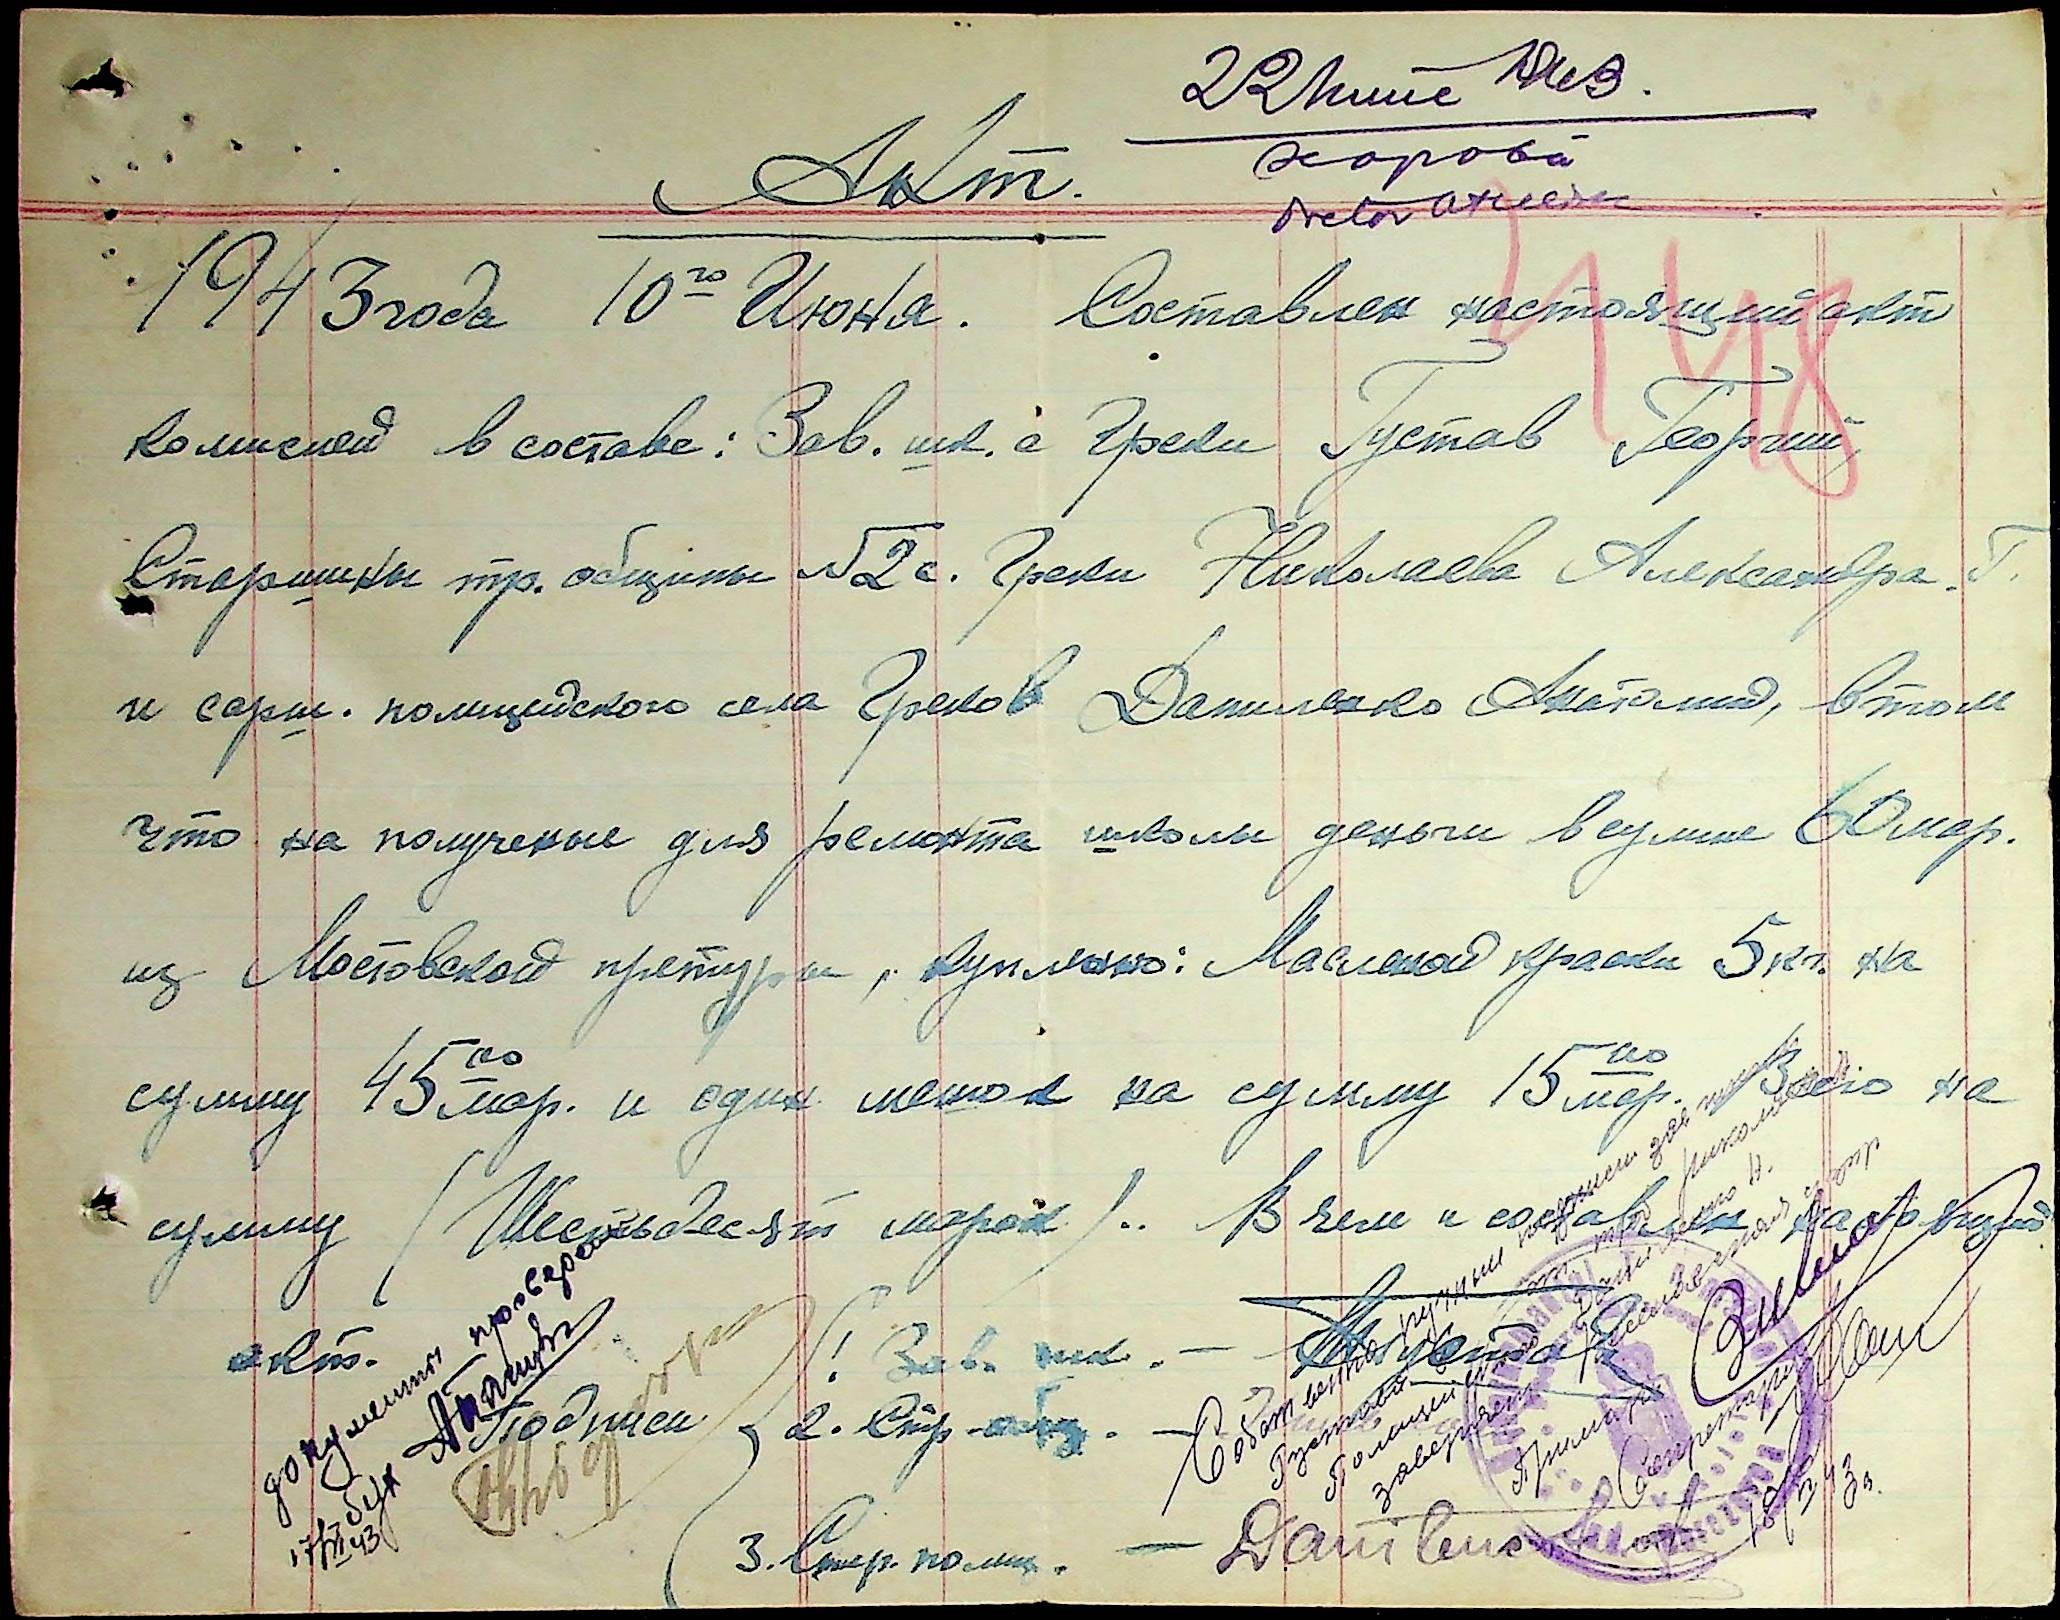 Акт.
1943 года 10го Июня. Составлен настоящий акт
комисией в составе: Зав. шк. с Греки Густав Георгий,
Старшины тр. общины №2 с. Греки Николаева Александра. Г.
и сарш. полицейского села Греков Даниленко Анатолий, в том
что на полученые для ремонта школы деньги в сумме 60 мар.
из Мостовской претуры, куплено: Масленой краски 5 кг. на
сумму 45 оо мар. и один мешок на сумму 15 оо мар. Всего на
сумму (Шестьдесят марок).. В чем и составлен настоящий
акт.
Подписи
1. Зав. шк. —
2. Стр. общ. —
3. Стар. полиц. —
документы проверены
бух
17/VI 43
448
Собственно ручные подписи зав школы
Густава
Полицейского Даниленко А.
заверяет
Примарь
Секретарь
18/VI 43 г.